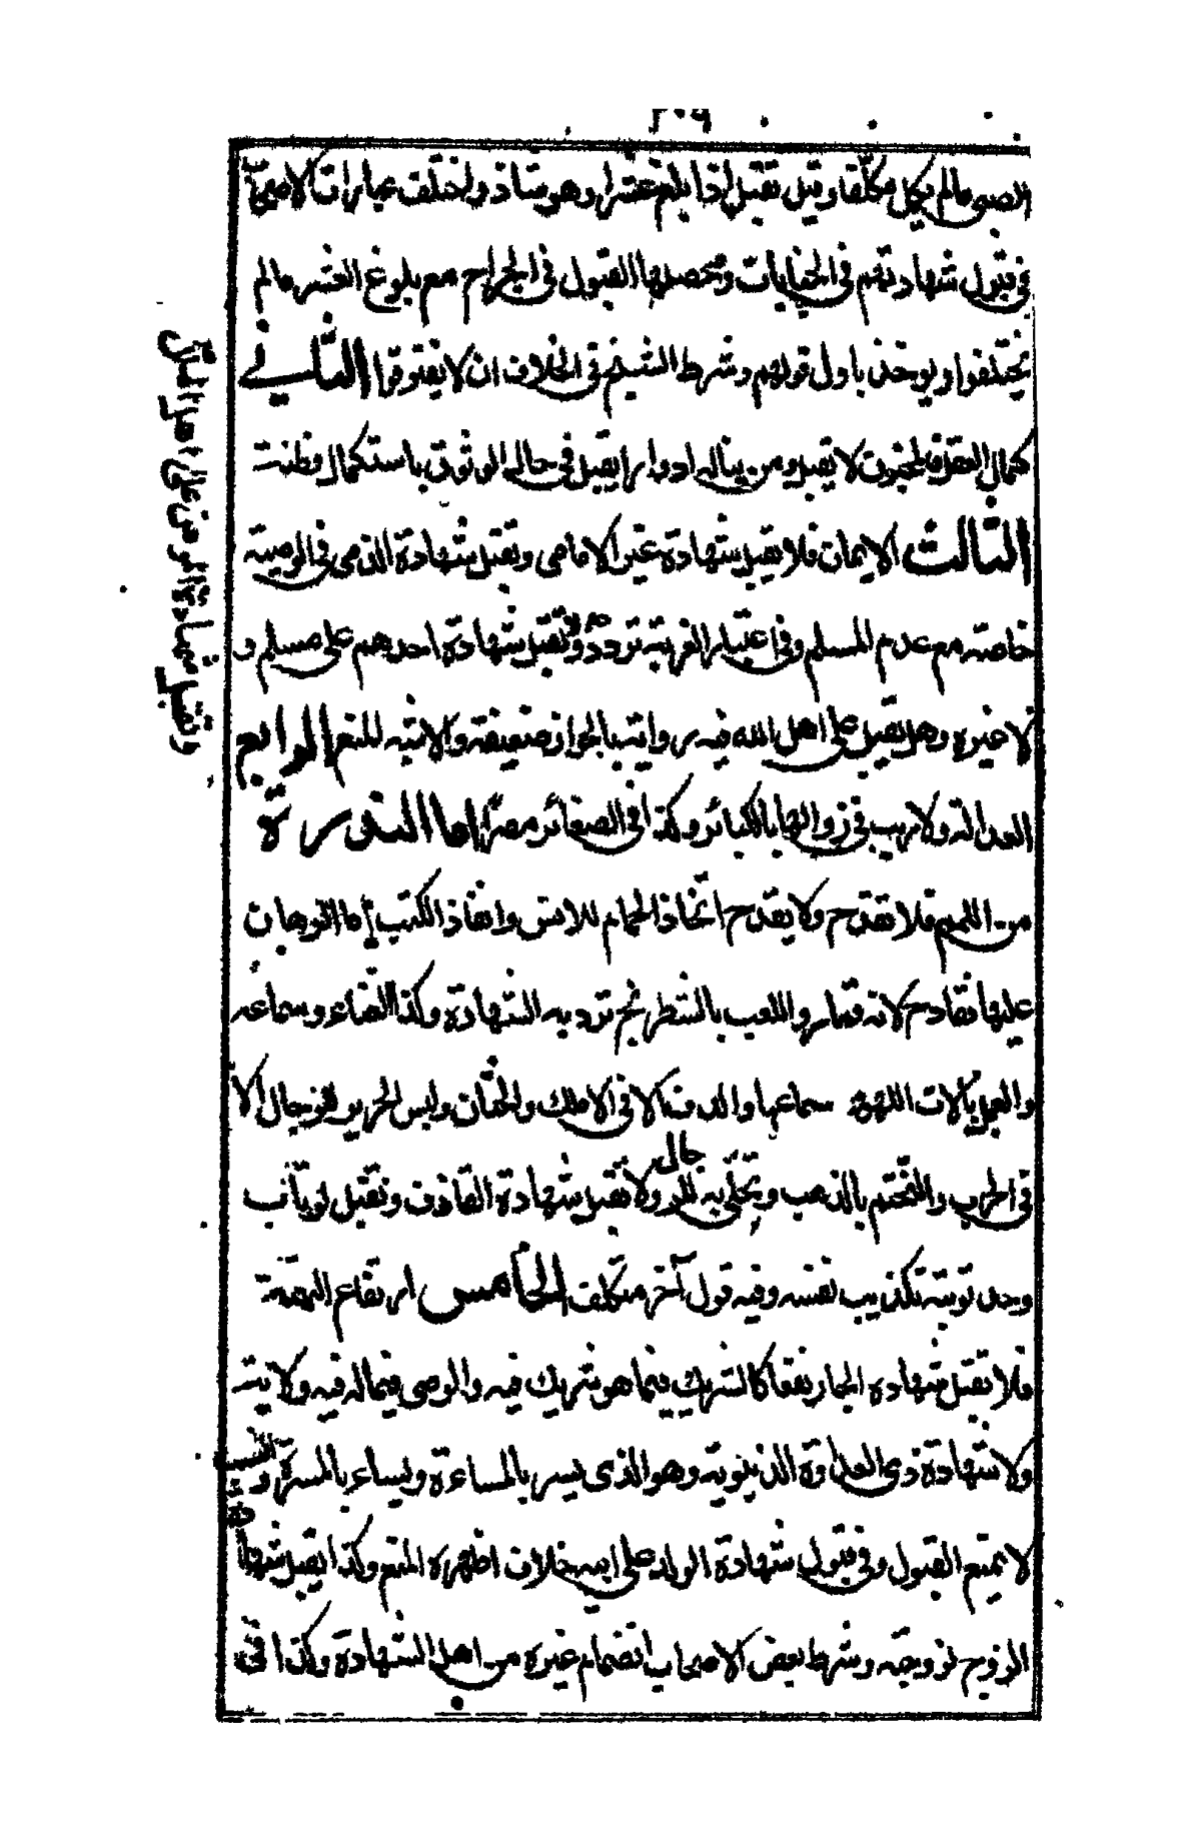 ٢٠٩
الصبى ما لم يكمل مكلفا وقيل تقبل اذا بلغ عشرا وهو شاذ واختلف عبارات الاصحاب
فى قبول شهادتهم فى الجنايات ومحصلها القبول فى الجراح مع بلوغ العشر ما لم
يختلفوا ويوخذ باول قولهم وشرط الشيخ فى الخلاف ان لا يفترقوا الثانى
كمال العقل فالمجنون لا يقبل ومن يناله ادوارا يقبل فى حال الوثوق باستكمال فطنته
الثالث الايمان فلا يقبل شهادة غير الامامى وتقبل شهادة الذمى فى الوصية
خاصة مع عدم المسلم وفى اعتبار الغربة تردد وتقبل شهادة احدهم على مسلم و
لا غيره وهل تقبل على اهل الله فيه رواية بالجواز ضعيفة والاشبه المنع الرابع
العدالة ولا ريب فى زوالها بالكبائر وكذا فى الصغائر مصرا اما الندرة
من اللمم فلا تقدح ولا يقدح اتخاذ الحمام للانس وانفاذ الكتب اما الرهان
عليها فقادح لانه قمار واللعب بالشطرنج ترد به الشهادة وكذا الغناء وسماعه
والعمل بآلات اللهو سماعها والدف الا فى الاملاك والختان ولبس الحرير للرجال الا
فى الحرب والتختم بالذهب وتحلى به للرجال ولا تقبل شهادة القاذف وتقبل لو تاب
وحد توبته تكذيب نفسه وفيه قول آخر متكلف الخامس ارتفاع التهمة
فلا تقبل شهادة الجار نفعا كالشريك فيما هو شريك فيه والوصى فيما له فيه ولاية
ولا شهادة ذى العداوة الدنيوية وهو الذى يسر بالمساءة ويساء بالمسرة والنسب
لا يمنع القبول وفى قبول شهادة الولد على ابيه خلاف اظهره المنع وكذا تقبل شهادة
الزوج لزوجته وشرط بعض الاصحاب انضمام غيره من اهل الشهادة وكذا فى
وتقبل شهادة المومن على اهل الملل